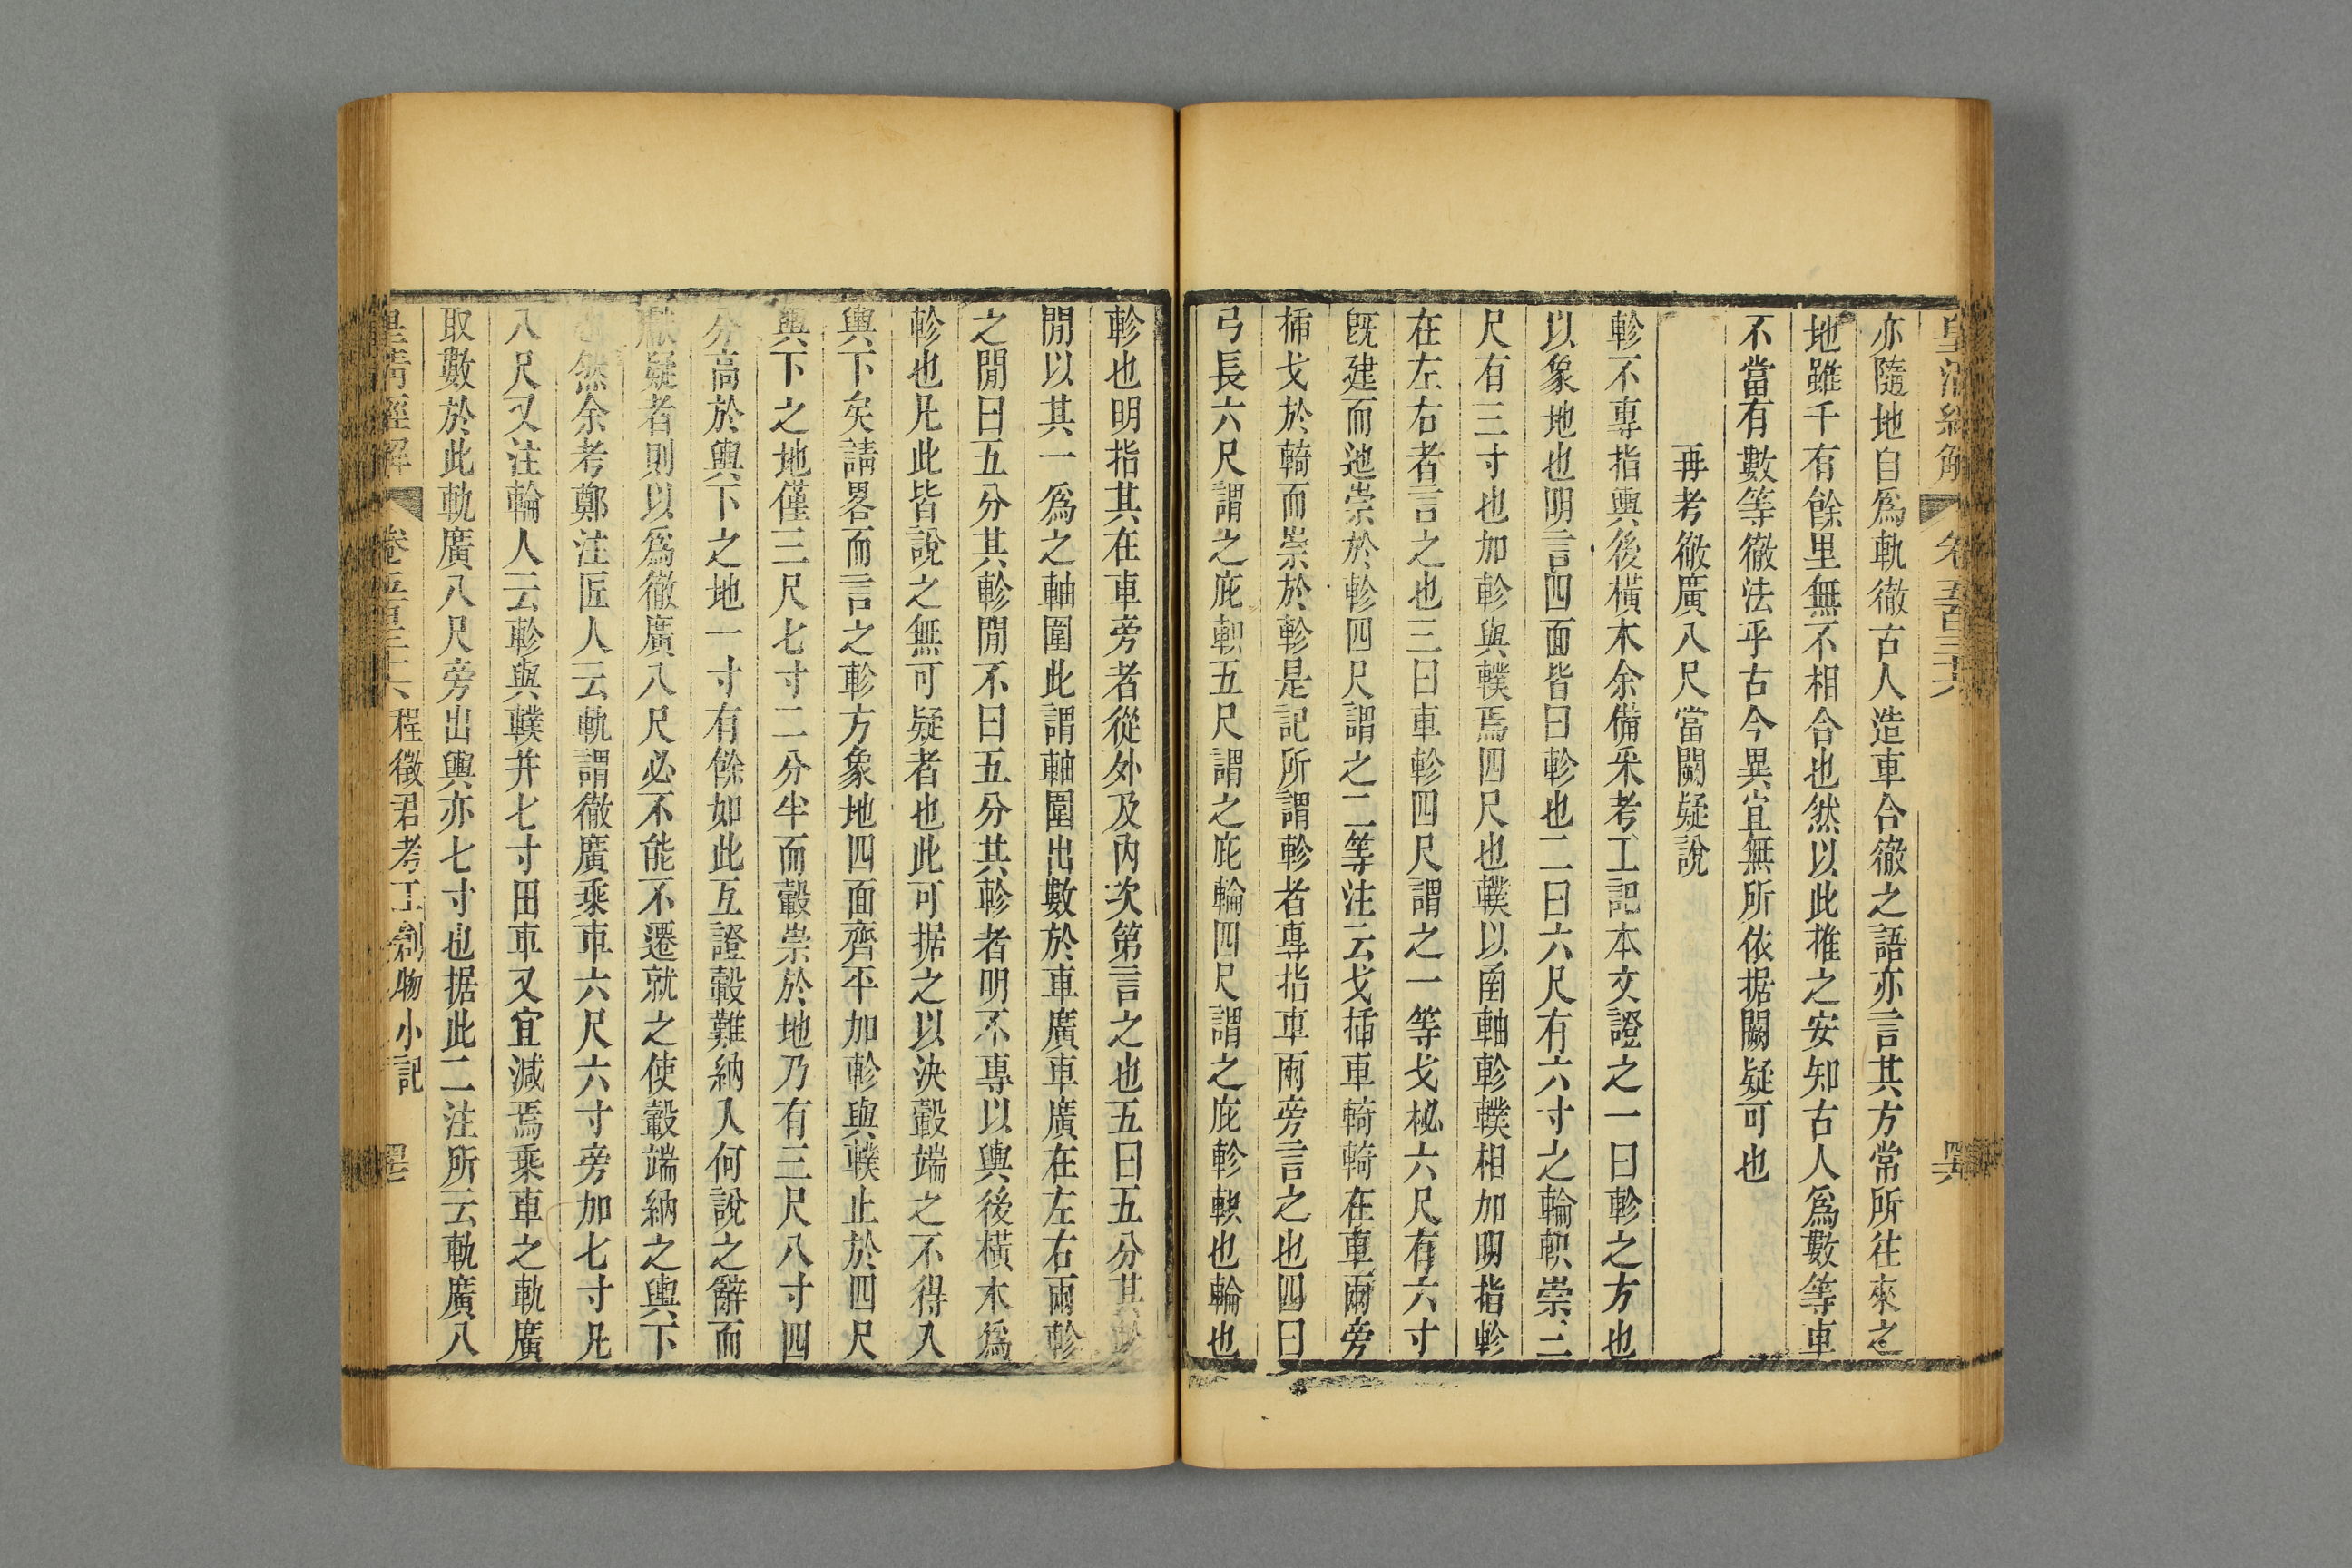 皇清經解 卷五百三十六 四六
亦隨地自爲軌徹古人造車合徹之語亦言其方常所往來之
地雖千有餘里無不相合也然以此推之安知古人爲數等車
不當有數等徹法乎古今異宜無所依据闕疑可也
再考徹廣八尺當闕疑說
軫不專指輿後橫木余備釆考工記本文證之一曰軫之方也
以象地也明言四面皆曰軫也二曰六尺有六寸之輪軹崇三
尺有三寸也加軫與轐焉四尺也轐以圅軸軫轐相加明指軫
在左右者言之也三曰車軫四尺謂之一等戈柲六尺有六寸
旣建而迆崇於軫四尺謂之二等注云戈揷車輢輢在車兩旁
揷戈於輢而崇於軫是記所謂軫者專指車兩旁言之也四曰
弓長六尺謂之庇軹五尺謂之庇輪四尺謂之庇軫軹也輪也
軫也明指其在車旁者從外及內次第言之也五曰五分其軫
閒以其一爲之軸圍此謂軸圍出數於車廣車廣在左右兩軫
之閒曰五分其軫閒不曰五分其軫者明不專以輿後橫木爲
軫也凡此皆說之無可疑者也此可据之以決轂端之不得入
輿下矣請畧而言之軫方象地四面齊平加軫與轐止於四尺
輿下之地僅三尺七寸二分半而轂崇於地乃有三尺八寸四
分高於輿下之地一寸有餘如此互證轂難納入何說之辭而
獻疑者則以爲徹廣八尺必不能不遷就之使轂端納之輿下
然余考鄭注匠人云軌謂徹廣乘車六尺六寸旁加七寸凡
八尺又注輪人云軫與轐并七寸田車又宜減焉乘車之軌廣
取數於此軌廣八尺旁出輿亦七寸也据此二注所云軌廣八
皇清經解 卷五百三十六 程徵君考工創物小記 四七